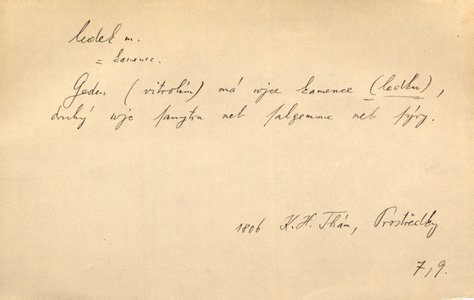 ledek m.
= kamenec.
Geden (vitrolím) má wjce kamence (ledku),
druhý wjc sanytru neb salgemme neb sýry.
1806 K. H. Thám, Prostředky
7, 9.